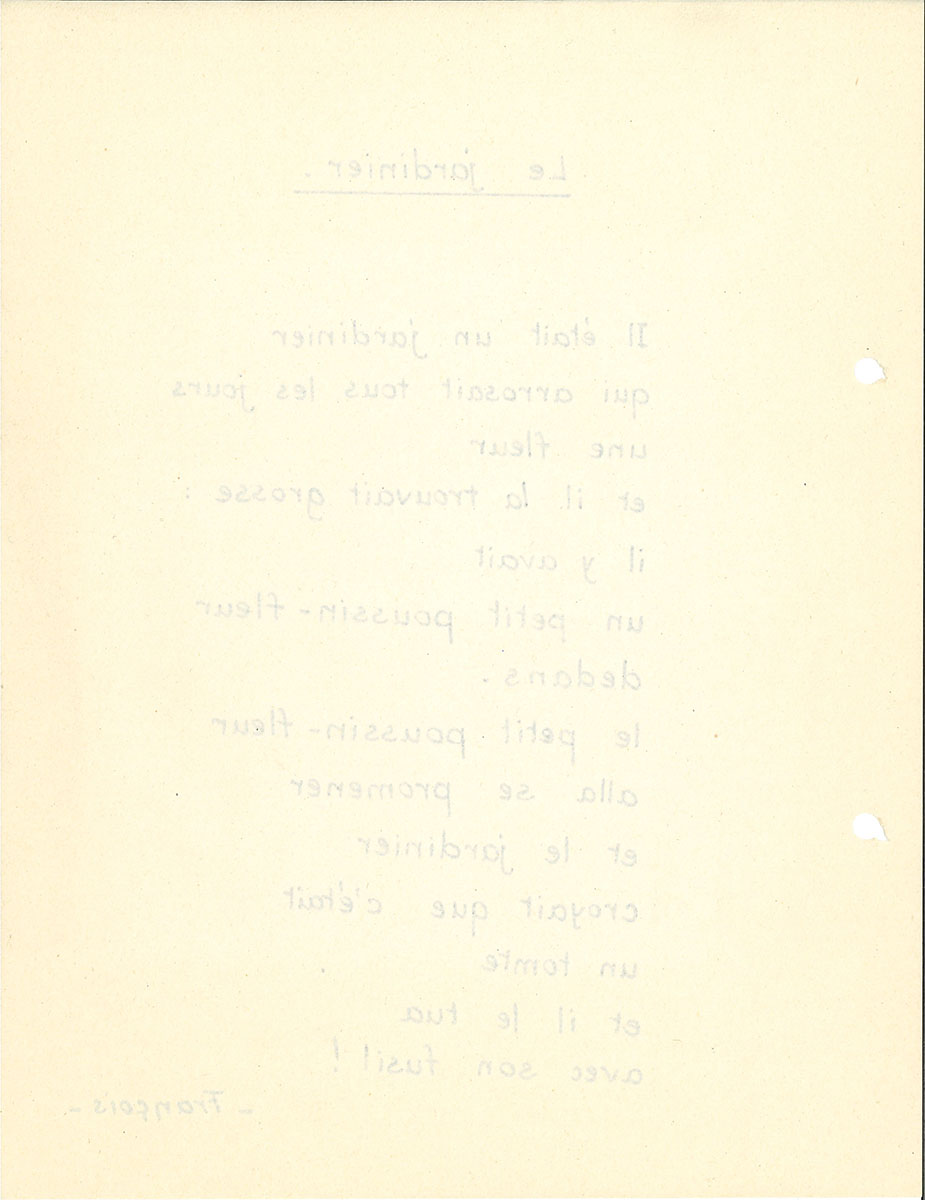 Le jardinier.
Il était un jardinier
qui arrosait tous les jours
une fleur
et il la trouvait grosse :
il y avait
un petit poussin-fleur
dedans.
le petit poussin-fleur
alla se promener
et le jardinier
croyait que c'était
un tomte
et il le tua
avec son fusil !
- François -